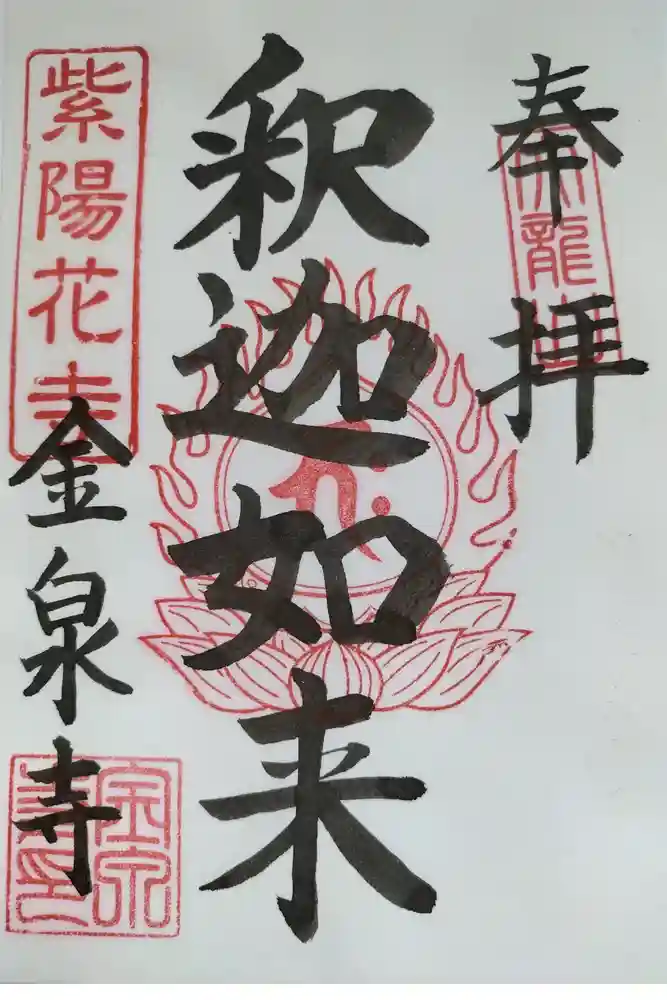 奉拝
釈迦如来
紫陽花寺
金泉寺